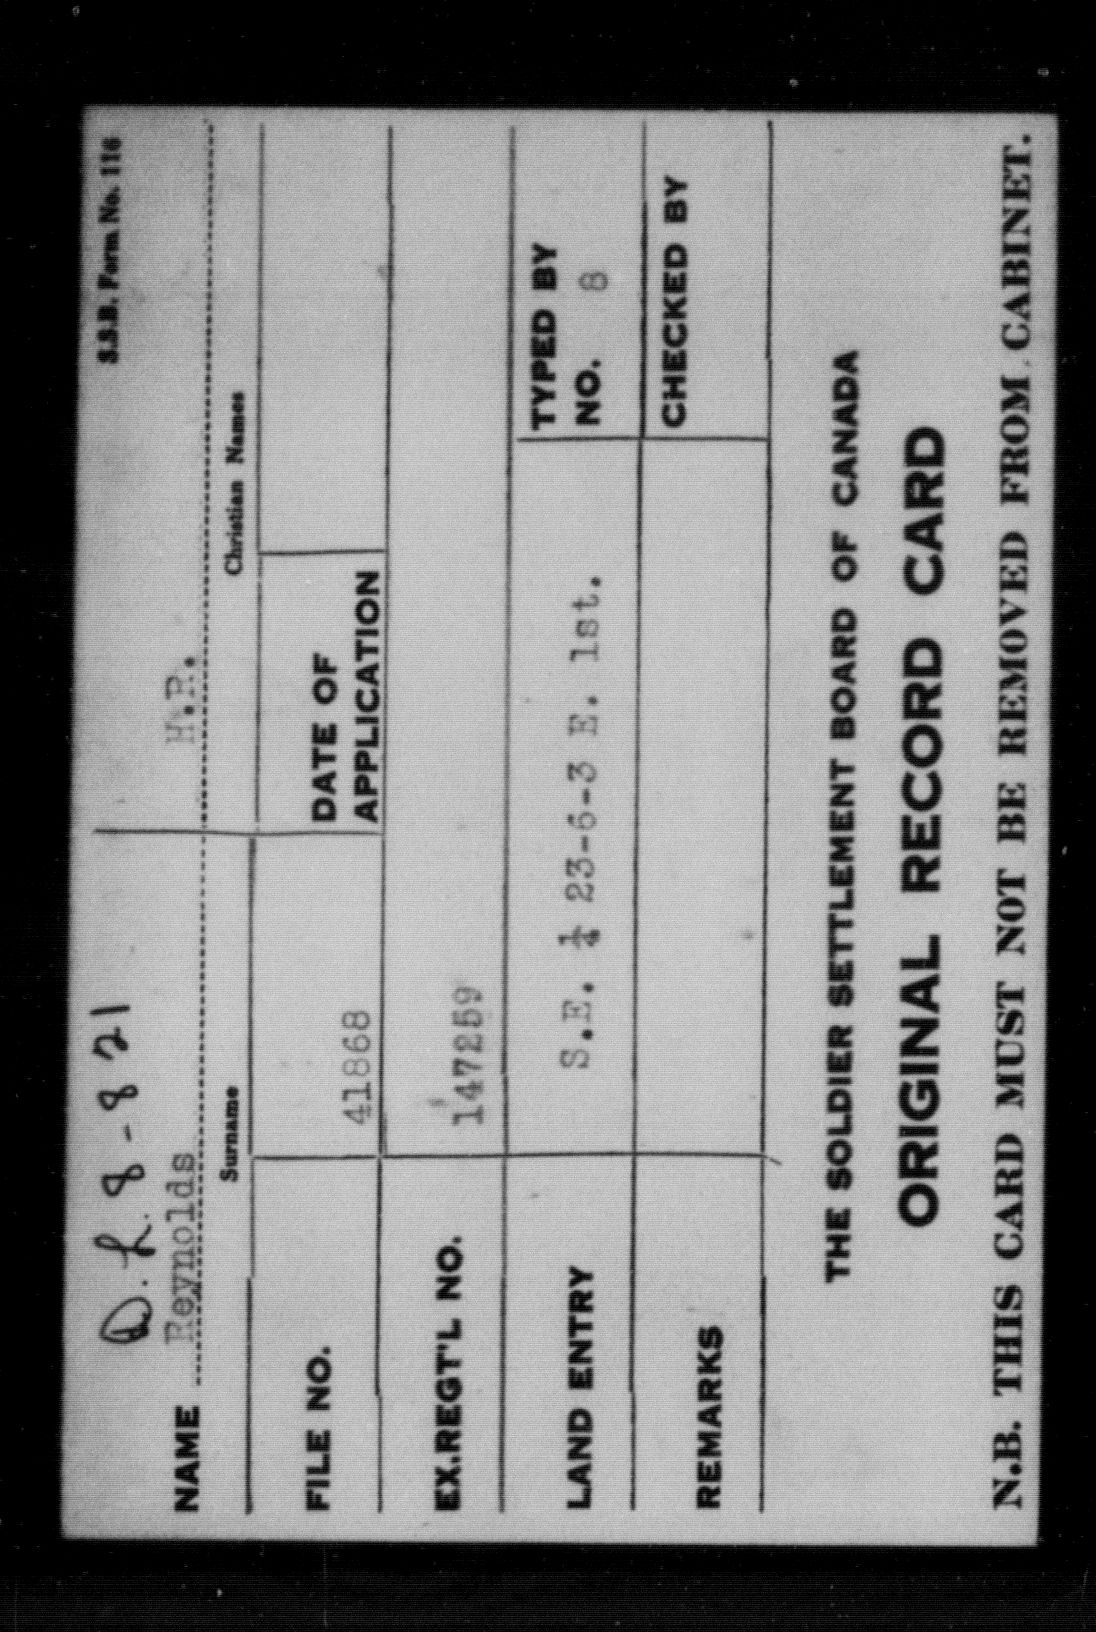 S.S.B. Form No. 116
D.L. 8-8 21
NAME Reynolds H.R.
Surname Christian Names
FILE NO. 41868 DATE OF APPLICATION
EX.REGT'L NO. 147259
LAND ENTRY S.E. ¼ 23-6-3 E. 1st. TYPED BY NO. 8
REMARKS CHECKED BY
THE SOLDIER SETTLEMENT BOARD OF CANADA
ORIGINAL RECORD CARD
N.B. THIS CARD MUST NOT BE REMOVED FROM CABINET.